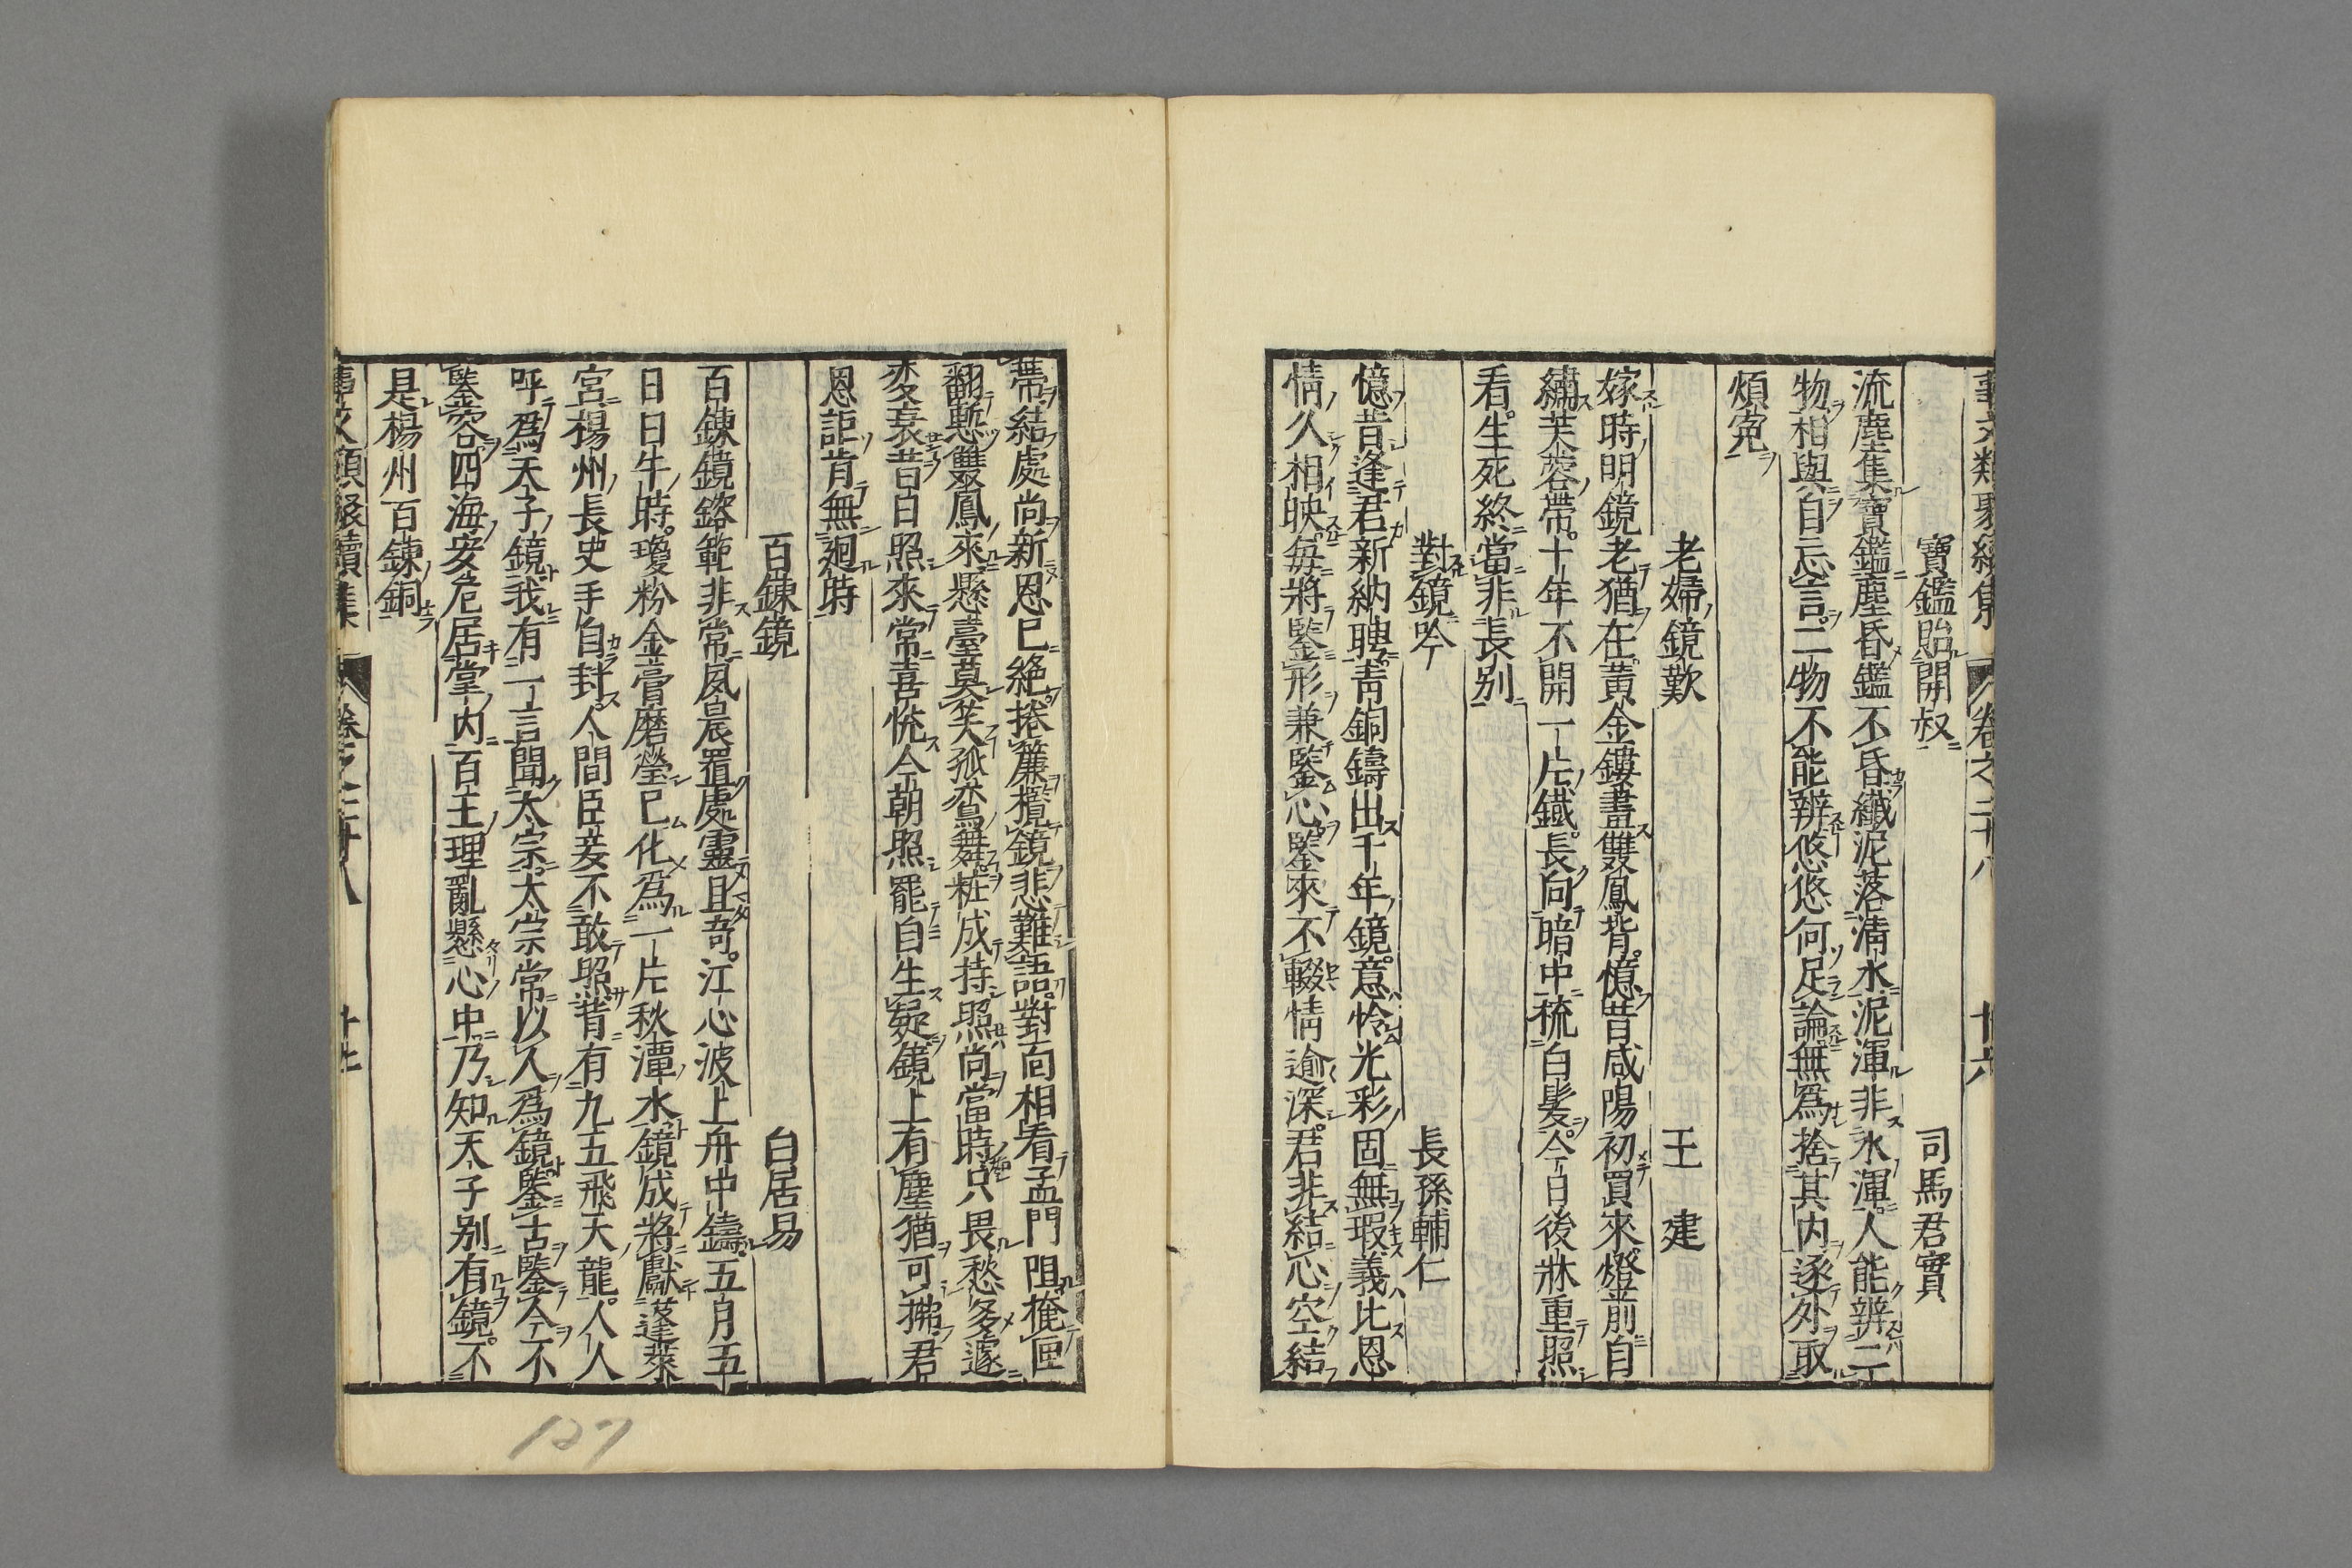 事文類聚續集 卷之二十八 十六
寶鑑貽開叔 司馬君實
流塵集寶鑑塵昏鑑不昏纖泥落清水泥渾非水渾人能辨二
物相與自忘言二物不能辨悠悠何足論無爲捨其内逐外取
煩寃
老婦鏡歎 王建
嫁時明鏡老猶在黃金鏤畫雙鳳背憶昔咸陽初買來燈前自
繡芙蓉帶十年不開一片鐵長向暗中梳白髪今日後牀重照
看生死終當非長别
對鏡吟 長孫輔仁
憶昔逢君新納聘青銅鑄出千年鏡意怜光彩固無瑕義比恩
情久相映每將鑒形兼鑒心鑒來不輟情逾深君非結心空結
帶結處尚新恩已絶捲簾攬鏡悲難語對面相看孟門阻掩匣
翻慙雙鳳來懸臺莫笑孤鸞舞粧成持照尚當時只畏愁多遽
変衰昔日照來常喜恱今朝照罷自生疑鏡上有塵猶可拂君
恩詎肯無廻時
百鍊鏡 白居易
百鍊鏡鎔範非常夙晨置處靈且奇江心波上舟中鑄五月五
日日午時瓊粉金膏磨瑩已化爲一片秋潭水鏡成將獻蓬萊
宮楊州長史手自封人間臣妾不敢照背有九五飛天龍人人
呼爲天子鏡我有一言聞太宗太宗常以人爲鏡鑒古鑒今不
鑒容四海安危居掌内百王理亂懸心中乃知天子别有鏡不
是楊州百鍊銅
事文類聚續集 卷之二十八 十七
127